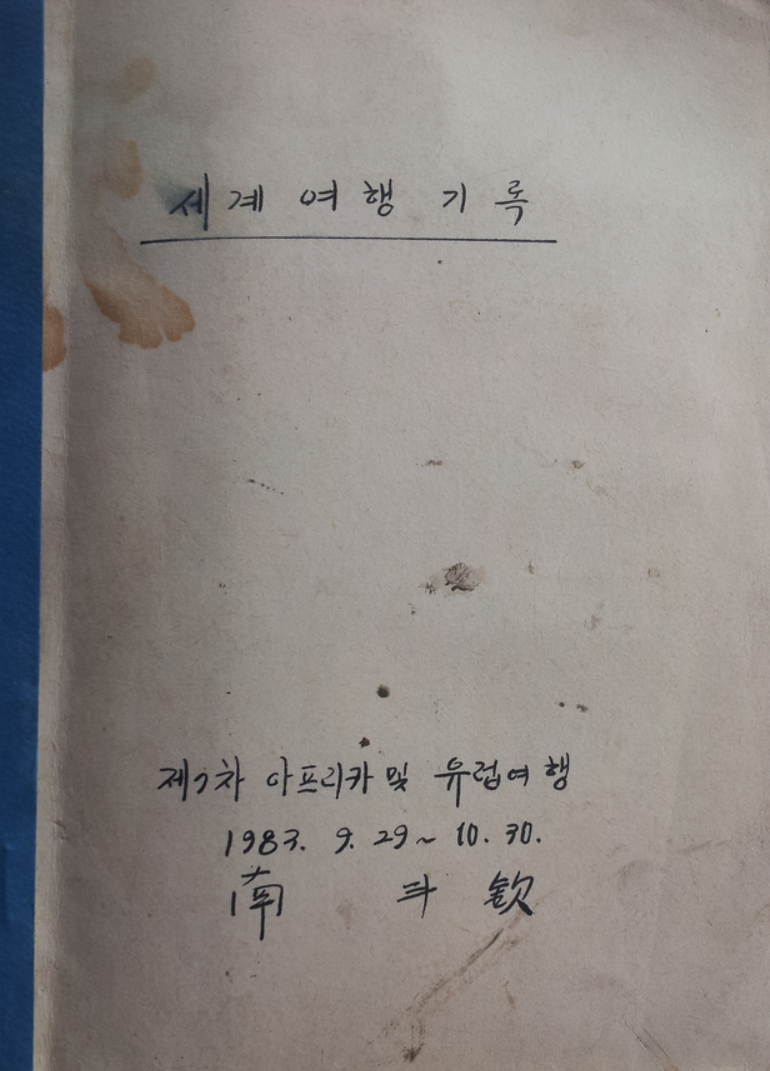 세계 여행 기록
제7차 아프리카 및 유럽여행
1983. 9. 29 ~ 10. 30.
南 斗 欽